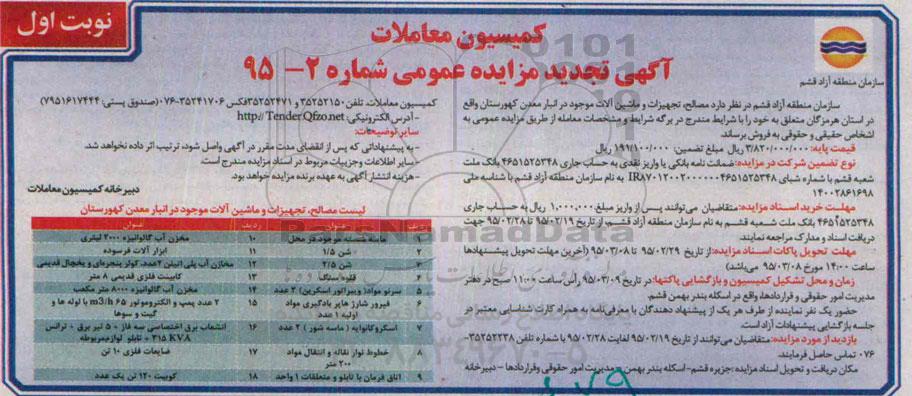 نوبت اول
کمیسیون معاملات
آگهی تجدید مزایده عمومی شماره ۲- ۹۵
سازمان منطقه آزاد قشم
سازمان منطقه آزاد قشم در نظر دارد مصالح، تجهیزات و ماشین آلات موجود در انبار معدن کهورستان واقع
در استان هرمزگان متعلق به خود را با شرایط مندرج در برگه شرایط و مشخصات معامله از طریق مزایده عمومی به
اشخاص حقیقی و حقوقی به فروش برساند.
قیمت پایه: ۳/۸۲۰/۰۰۰/۰۰۰ ریال مبلغ تضمین: ۱۹۱/۱۰۰/۰۰۰ ریال
نوع تضمین شرکت در مزایده: ضمانت نامه بانکی یا واریز نقدی به حساب جاری ۴۶۵۱۵۲۵۳۴۸ بانک ملت
شعبه قشم با شماره شبای به نام سازمان منطقه آزاد قشم با شناسه ملی
۱۴۰۰۲۸۶۱۶۹۸
مهلت خرید اسناد مزایده: متقاضیان می‌توانند پس از واریز مبلغ ۱،۰۰۰،۰۰۰ ریال به حساب جاری
۴۶۵۱۵۲۵۳۴۸ بانک ملت شعبه قشم به نام سازمان منطقه آزاد قشم، از تاریخ ۹۵/۰۲/۱۹ تا ۹۵/۰۲/۲۸ جهت
دریافت اسناد و مدارک مراجعه نمایند.
مهلت تحویل پاکات اسناد مزایده: از تاریخ ۹۵/۰۲/۲۹ تا ۹۵/۰۳/۰۸ (آخرین مهلت تحویل پیشنهادها
ساعت ۱۴:۰۰ مورخ ۹۵/۰۳/۰۸ می‌باشد)
زمان و محل تشکیل کمیسیون و بازگشایی پاکتها: در تاریخ ۹۵/۰۳/۰۹ رأس ساعت ۱۱:۰۰ صبح در دفتر
مدیریت امور حقوقی و قراردادها، واقع در اسکله بندر بهمن قشم.
حضور یک نفر نماینده از طرف هر یک از پیشنهاد دهندگان با معرفی‌نامه به همراه کارت شناسایی معتبر در
جلسه بازگشایی پیشنهادات آزاد است.
بازدید از مورد مزایده: متقاضیان می‌توانند از تاریخ ۹۵/۰۲/۱۹ لغایت ۹۵/۰۲/۲۸ با شماره تلفن ۳۵۲۵۲۲۳۸-
۰۷۶ تماس حاصل فرمایند.
مکان دریافت و تحویل اسناد مزایده: جزیره قشم- اسکله بندر بهمن - مدیریت امور حقوقی وقراردادها - دبیرخانه
کمیسیون معاملات، تلفن: ۳۵۲۵۲۱۵۰ و ۳۵۲۵۲۴۷۱ فکس ۳۵۲۴۱۷۰۶-۰۷۶ (صندوق پستی: ۷۹۵۱۶۱۷۴۴۴)
- آدرس الکترونیکی: http://Tender.Qfzo.net
سایر توضیحات:
- به پیشنهاداتی که پس از انقضای مدت مقرر در آگهی واصل شود، ترتیب اثر داده نخواهد شد.
- سایر اطلاعات و جزییات مربوط در اسناد مزایده مندرج است.
- هزینه انتشار آگهی به عهده برنده مزایده خواهد بود.
دبیرخانه کمیسیون معاملات
لیست مصالح، تجهیزات و ماشین آلات موجود در انبار معدن کهورستان
ردیف عنوان ردیف عنوان
۱ ماسه شسته موجود در محل ۱۰ مخزن آب گالوانیزه ۲۰۰۰ لیتری
۲ شن ۱/۵ ۱۱ ابزار آلات فرسوده
۳ شن ۲/۵ ۱۲ مخازن آب پلی اتیلن ۲ عدد، کولر پنجره‌ای و یخچال قدیمی
۴ قلوه سنگ ۱۳ کابینت فلزی قدیمی ۸ متر
۵ سرنو مواد( ویبراتور اسکرین) ۲ عدد ۱۴ مخزن آب گالوانیزه ۸۰۰۰ متر مکعب
۶ فیرور شارژ هاپر بادگیری مواد اولیه ۱ عدد ۱۵ ۲ عدد پمپ و الکتروموتور ۶۵ m3/h با لوله ها و گیت و سوها
۷ اسکروکانوایه ( ماسه شور ) ۲ عدد ۱۶ انشعاب برق اختصاصی سه فاز + ۵ تیر برق + ترانس ۳۱۵ KVA + تابلو و لوازم مربوطه
۸ خطوط نوار نقاله و انتقال مواد ۲۰۰ متر ۱۷ ضایعات فلزی ۱۰ تن
۹ اتاق فرمان با تابلو و متعلقات ۱ واحد ۱۸ کوبیت ۱۲۰ تن یک عدد
ParsNamadData
۰۲۱-۸۸۳۴۹۶۷۰-۵